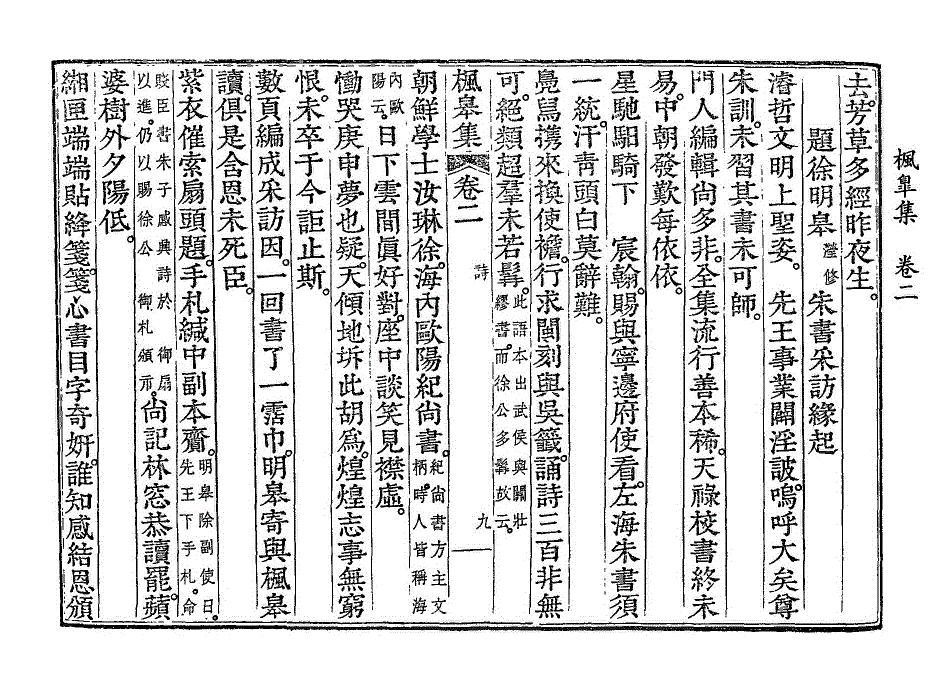 楓皐集　卷二
去。芳草多經昨夜生。
題徐明皋瀅修朱書采訪緣起
濬哲文明上聖姿。先王事業闢淫詖。嗚呼大矣尊
朱訓。未習其書未可師。
門人編輯尙多非。全集流行善本稀。天祿校書終未
易。中朝發歎每依依。
星馳馹騎下　宸翰。賜與寧邊府使看。左海朱書須
一統。汗靑頭白莫辭難。
鳧舃攜來換使襜。行求閩刻與吳籤。誦詩三百非無
可。絕類超羣未若髥。此語本出武侯與關壯繆書。而徐公多髥故云。
楓皋集　卷二　詩　九
朝鮮學士汝琳徐。海內歐陽紀尙書。紀尙書方主文柄。時人皆稱海
內歐陽云。日下雲間眞好對。座中談笑見襟虛。
慟哭庚申夢也疑。天傾地坼此胡爲。煌煌志事無窮
恨。未卒于今詎止斯。
數頁編成采訪因。一回書了一霑巾。明皋寄與楓皋
讀。俱是含恩未死臣。
紫衣催索扇頭題。手札緘中副本齎。明皋除副使日。先王下手札。命
賤臣書朱子感興詩於　御扇以進。仍以賜徐公　御札頒示。尙記林窓恭讀罷。蘋
婆樹外夕陽低。
緗匣端端貼絳箋。箋心書目字奇姸。誰知感結恩頒